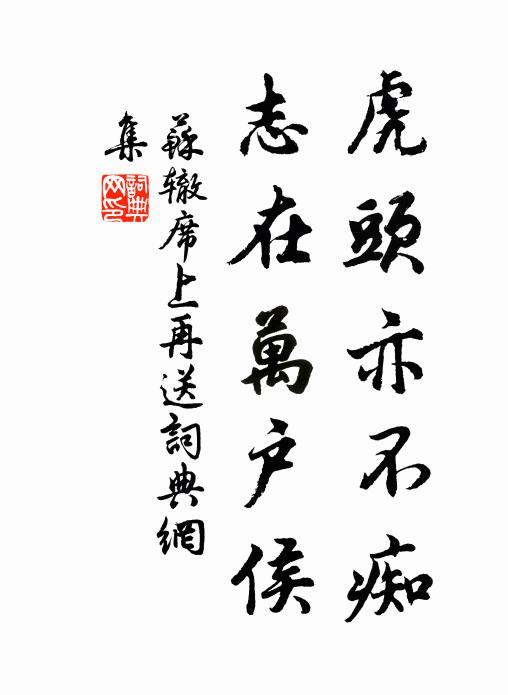 虎頭亦不痴
志在萬户侯
蘇辙席上再送詞典網
集
詞典
网印